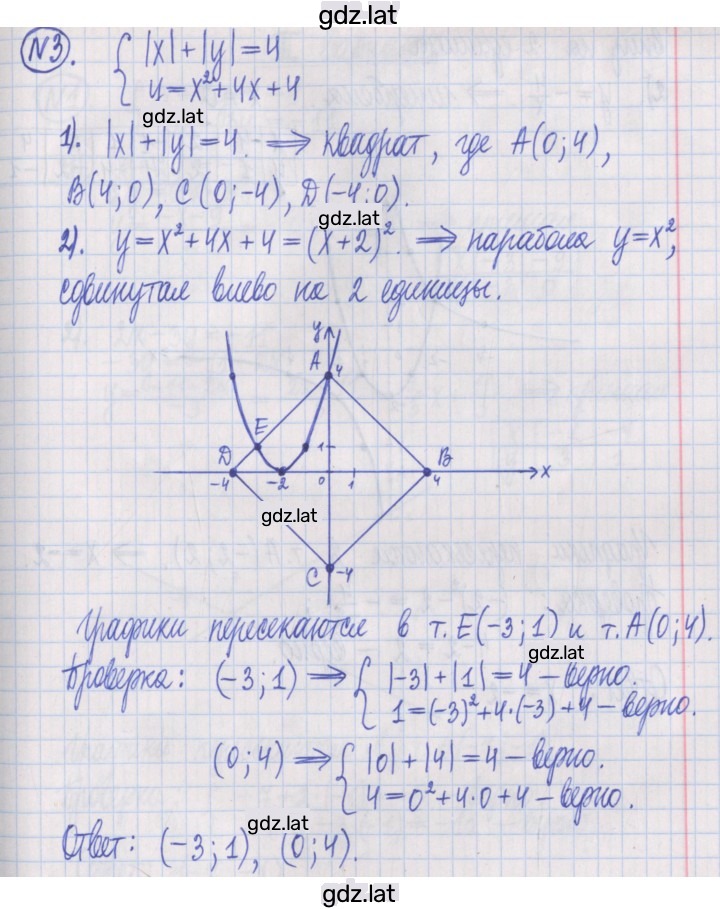 gdz.lat
№3. { |x|+|y|=4
y=x²+4x+4
gdz.lat
1). |x|+|y|=4. ⟹ квадрат, где A(0;4),
B(4;0), C(0;-4), D(-4:0).
gdz.lat
2). y=x²+4x+4=(x+2)². ⟹ парабола y=x²,
сдвинутая влево на 2 единицы.
y
A 4
E 1
D B
-4 -2 0 1 4 x
gdz.lat
C -4
Графики пересекаются в т. E(-3;1) и т. A(0;4).
gdz.lat
Проверка: (-3;1) ⟹ { |-3|+|1|=4 – верно.
1=(-3)²+4·(-3)+4 – верно.
(0;4) ⟹ { |0|+|4|=4 – верно.
4=0²+4·0+4 – верно.
gdz.lat
Ответ: (-3;1), (0;4).
gdz.lat